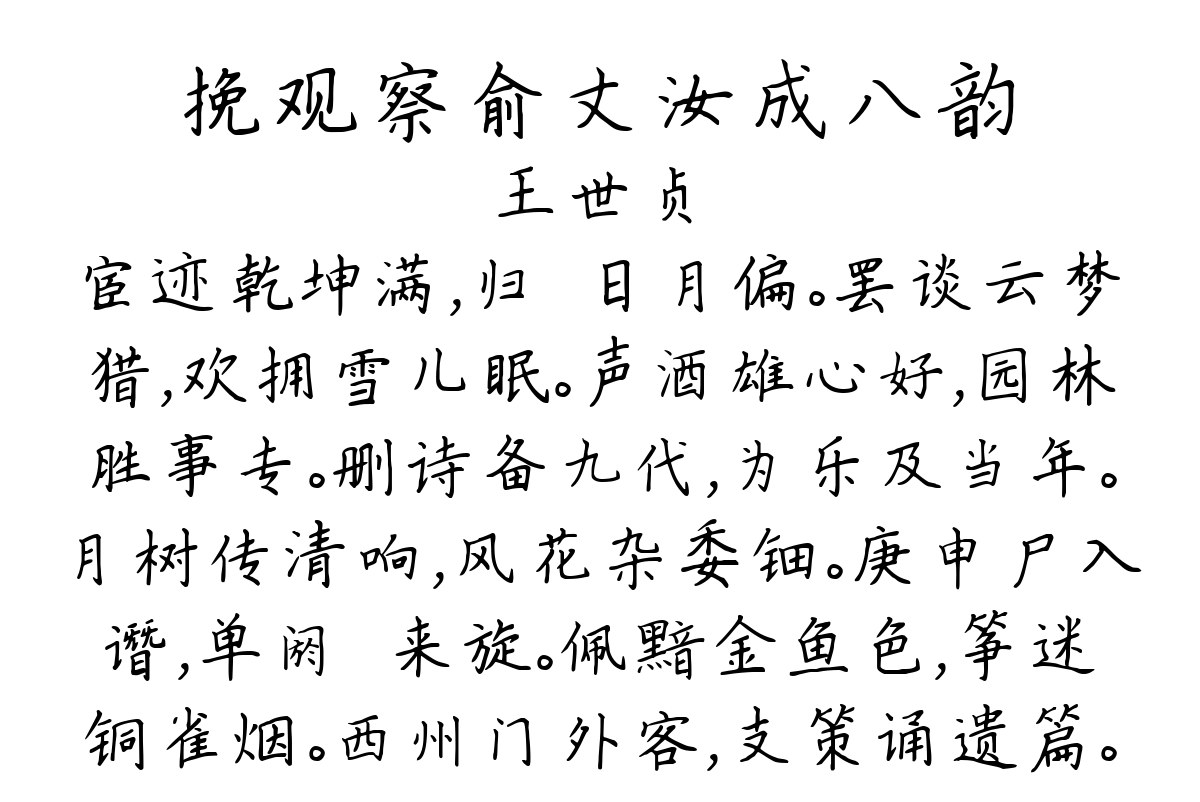 挽观察俞丈汝成八韵
王世贞
宦迹乾坤满,归 日月偏。罢谈云梦
猎,欢拥雪儿眠。声酒雄心好,园林
胜事专。删诗备九代,为乐及当年。
月树传清响,风花杂委钿。庚申尸入
谮,单阏 来旋。佩黯金鱼色,筝迷
铜雀烟。西州门外客,支策诵遗篇。